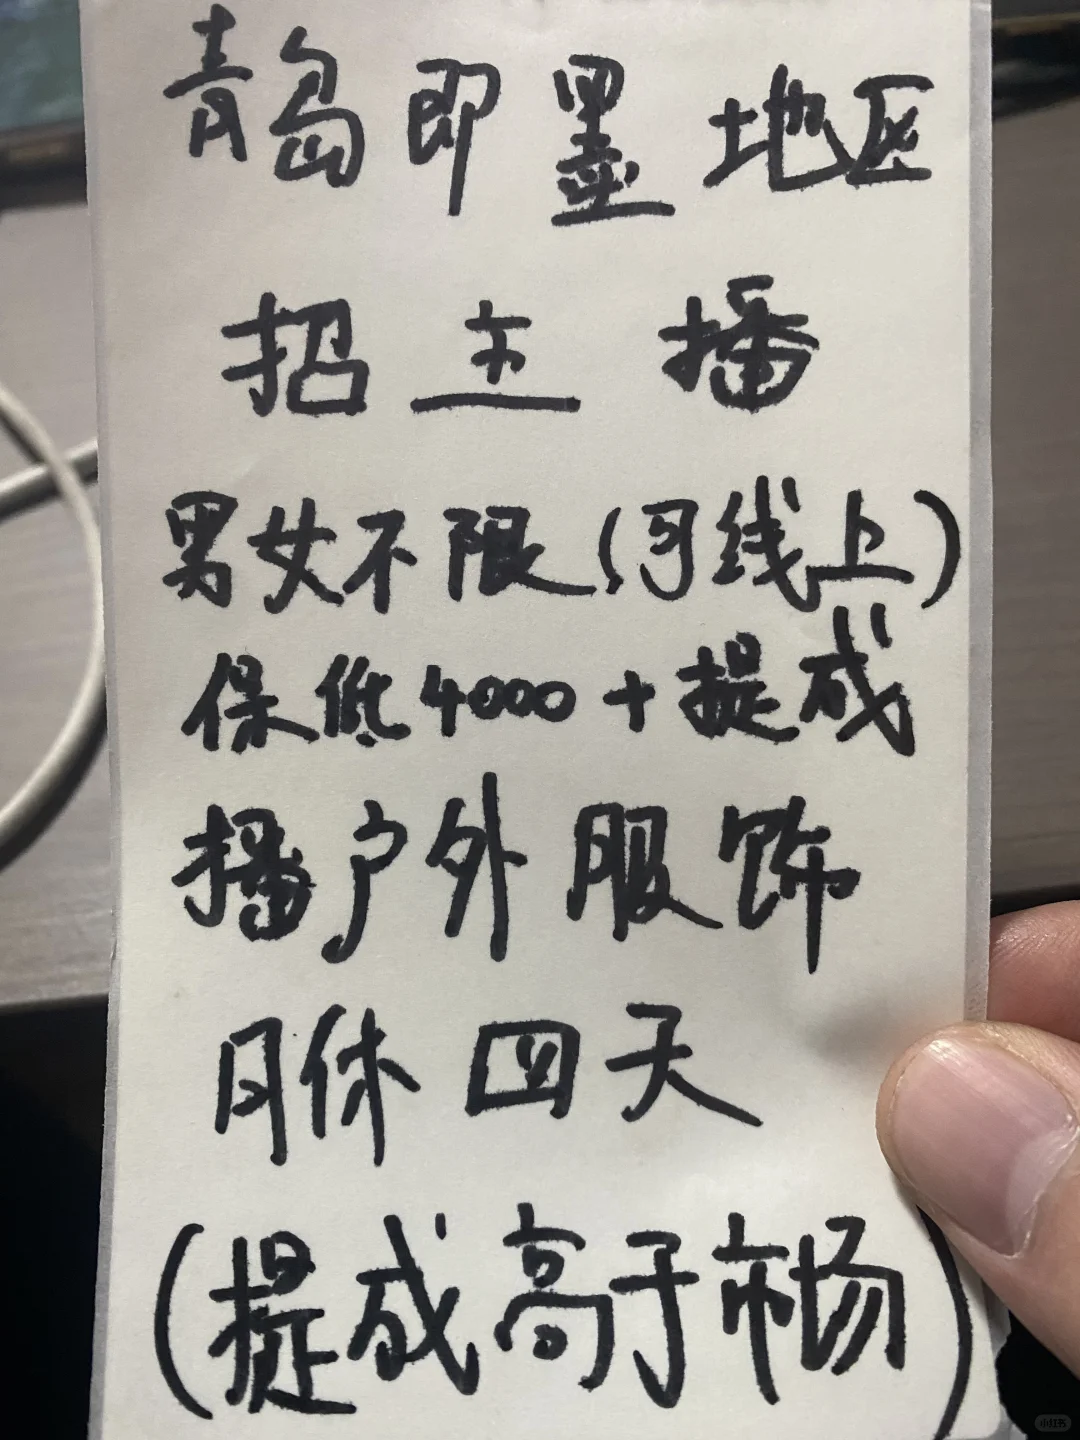 青岛即墨地区
招主播
男女不限(可线上)
保低4000+提成
播户外服饰
月休四天
(提成高于市场)
小红书